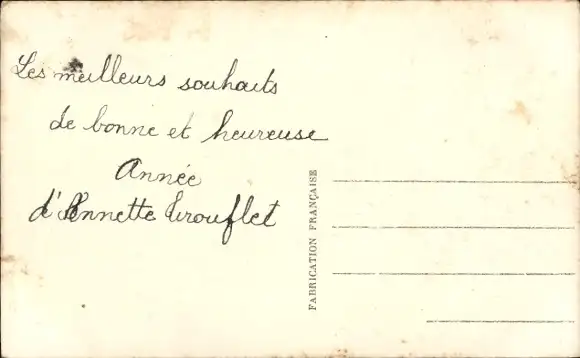 Les meilleurs souhaits
de bonne et heureuse
Année
d'Annette Trouflet
FABRICATION FRANÇAISE